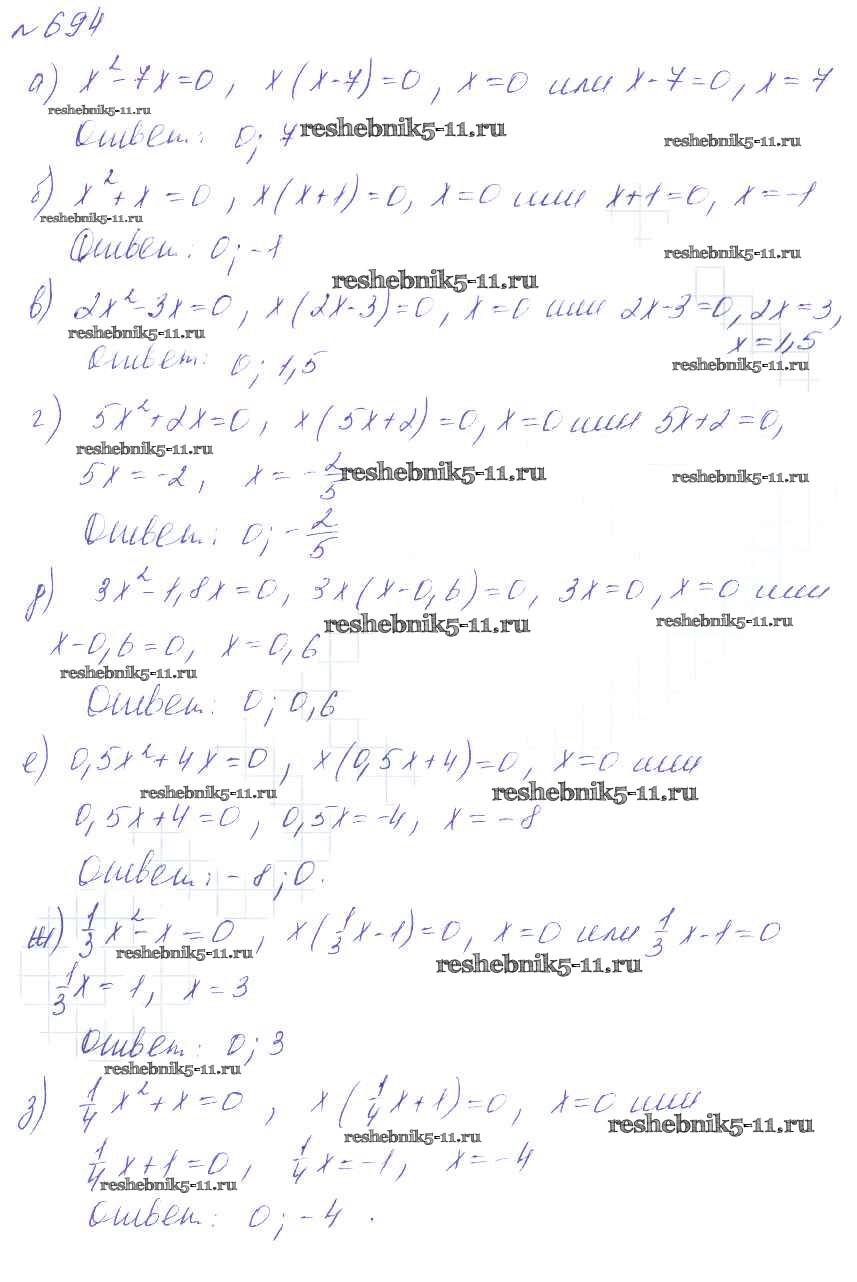 №694
а) x²-7x=0, x(x-7)=0, x=0 или x-7=0, x=7
reshebnik5-11.ru
Ответ: 0; 7 reshebnik5-11.ru reshebnik5-11.ru
б) x²+x=0, x(x+1)=0, x=0 или x+1=0, x=-1
reshebnik5-11.ru
Ответ: 0; -1 reshebnik5-11.ru
reshebnik5-11.ru
в) 2x²-3x=0, x(2x-3)=0, x=0 или 2x-3=0, 2x=3,
reshebnik5-11.ru x=1,5
Ответ: 0; 1,5 reshebnik5-11.ru
г) 5x²+2x=0, x(5x+2)=0, x=0 или 5x+2=0,
reshebnik5-11.ru
5x=-2, x=-2/5 reshebnik5-11.ru reshebnik5-11.ru
Ответ: 0; -2/5
д) 3x²-1,8x=0, 3x(x-0,6)=0, 3x=0, x=0 или
reshebnik5-11.ru reshebnik5-11.ru
x-0,6=0, x=0,6
reshebnik5-11.ru
Ответ: 0; 0,6
е) 0,5x²+4x=0, x(0,5x+4)=0, x=0 или
reshebnik5-11.ru reshebnik5-11.ru
0,5x+4=0, 0,5x=-4, x=-8
Ответ: -8; 0.
ж) 1/3x²-x=0, x(1/3x-1)=0, x=0 или 1/3x-1=0
reshebnik5-11.ru reshebnik5-11.ru
1/3x=1, x=3
Ответ: 0; 3
reshebnik5-11.ru
з) 1/4x²+x=0, x(1/4x+1)=0, x=0 или
reshebnik5-11.ru reshebnik5-11.ru
1/4x+1=0, 1/4x=-1, x=-4
reshebnik5-11.ru
Ответ: 0; -4.